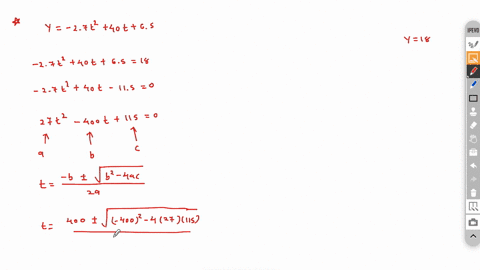 Y = -2.7t² + 40t + 6.5
Y = 18
-2.7t² + 40t + 6.5 = 18
-2.7t² + 40t - 11.5 = 0
27t² - 400t + 115 = 0
a b c
t = -b ± √b² - 4ac / 2a
t = 400 ± √(-400)² - 4(27)(115)